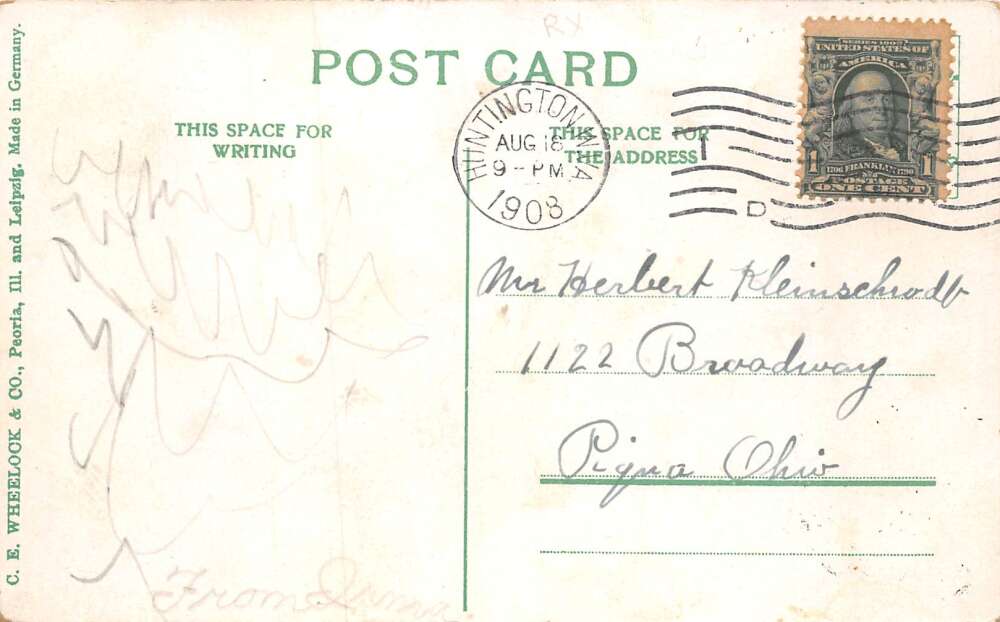 RX
POST CARD
THIS SPACE FOR
WRITING
THIS SPACE FOR
THE ADDRESS
HUNTINGTON, W.VA
AUG 18
9 - PM
1908
D
SERIES 1902
UNITED STATES OF
AMERICA
1 1
1706 FRANKLIN 1790
POSTAGE
ONE CENT
Mr Herbert Kleinschrodt
1122 Broadway
Piqua Ohio
From Irma
C. E. WHEELOCK & CO., Peoria, Ill. and Leipzig. Made in Germany.